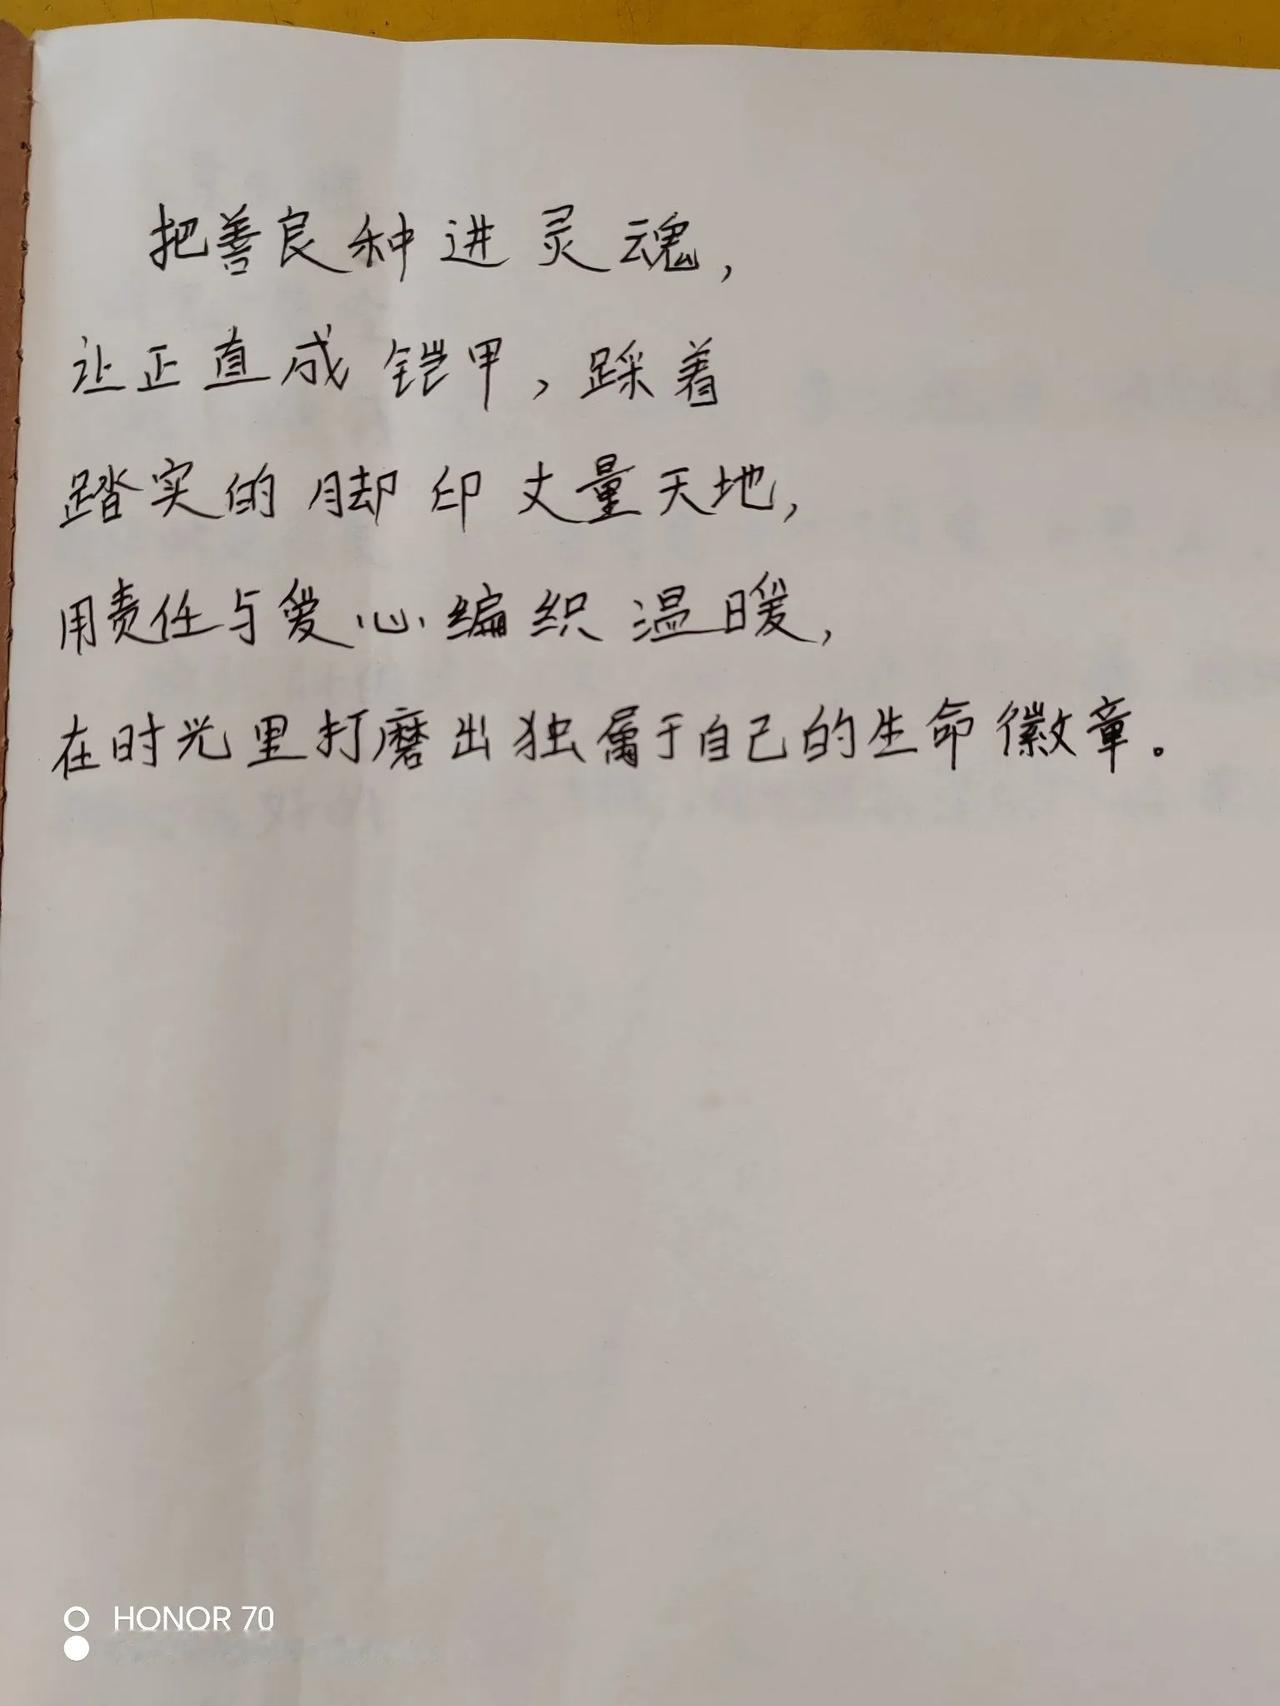 把善良种进灵魂，
让正直成铠甲，踩着
踏实的脚印丈量天地，
用责任与爱心编织温暖，
在时光里打磨出独属于自己的生命徽章。
HONOR 70